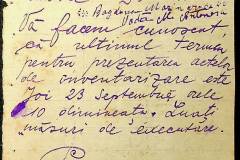 Bogdana
Vă facem cunoscut
că ultimul termen
pentru prezentarea actelor
de inventarizare este
Joi 23 Septembrie orele
10 dimineața. Luați
măsuri de executare.